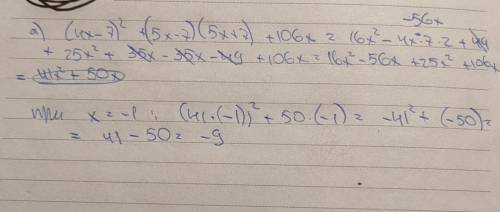 -56x
а) (4x-7)² + (5x-7)(5x+7) + 106x = 16x² - 4x·7·2 + 49
+ 25x² + 35x - 35x - 49 + 106x = 16x² - 56x + 25x² + 106x
= 41x² + 50x
при x = -1 : (41·(-1))² + 50·(-1) = -41² + (-50) =
= 41 - 50 = -9